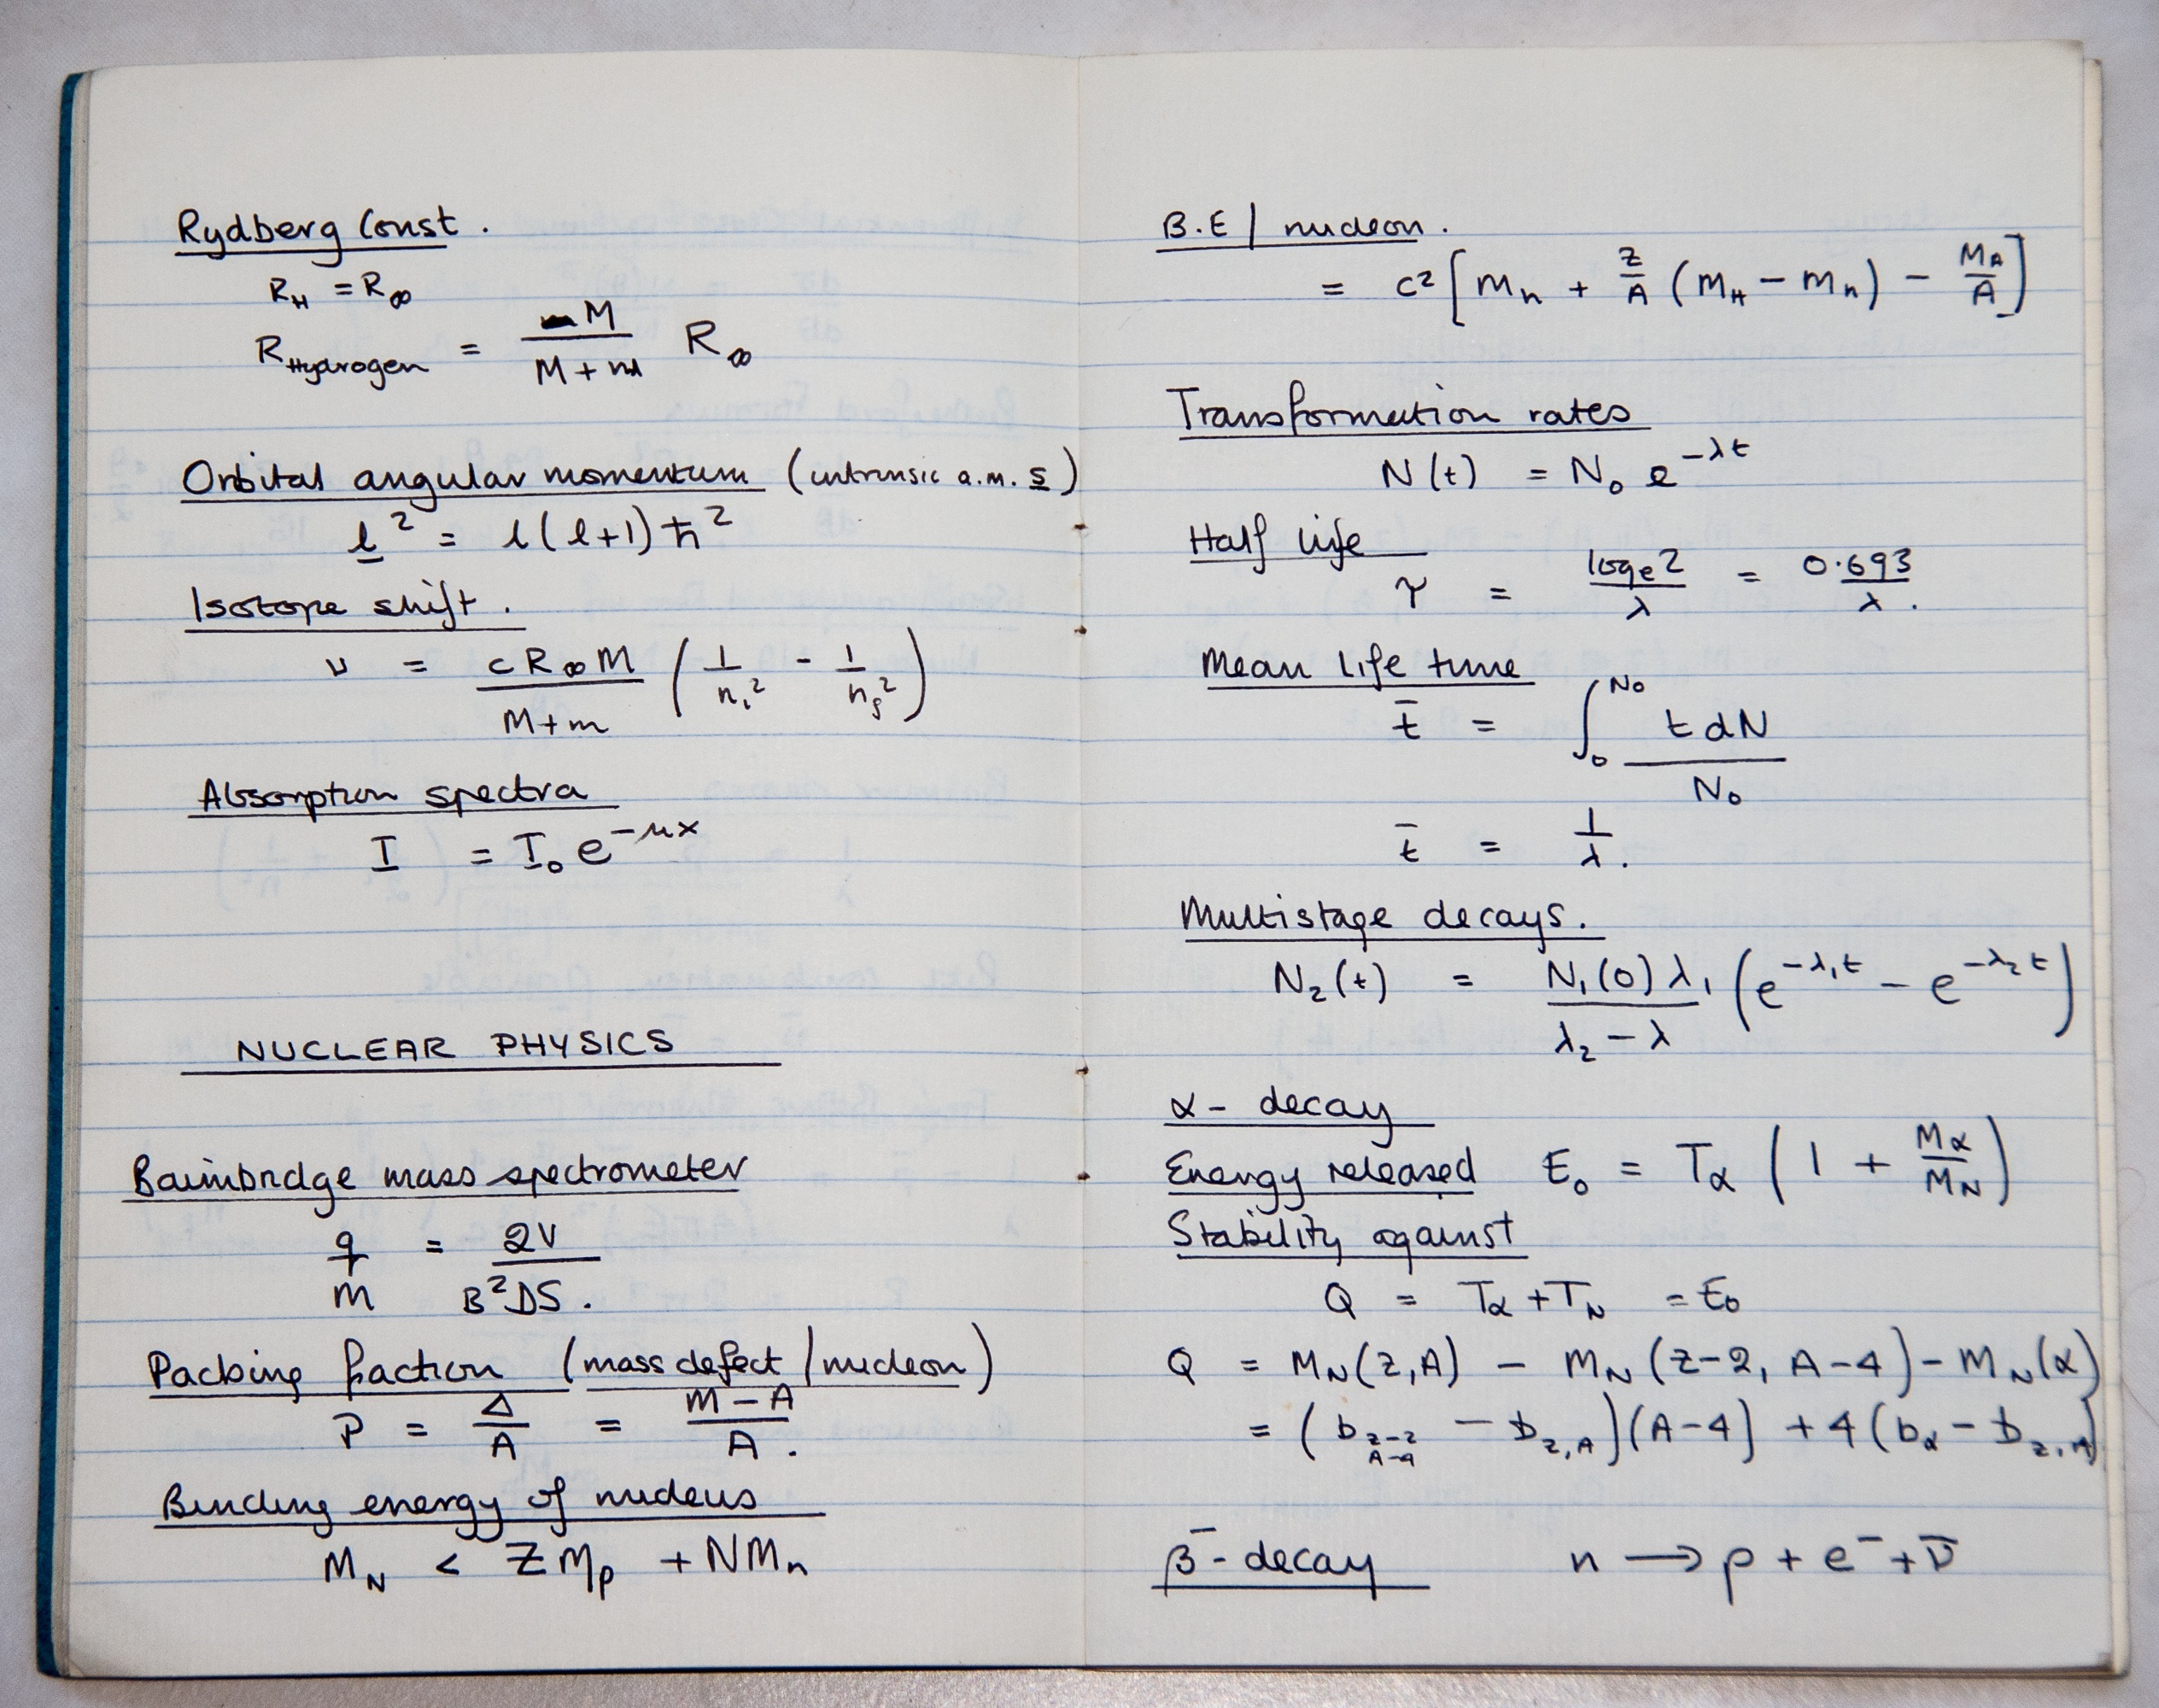 Rydberg Const.
R_H = R_∞
R_Hydrogen = M/(M + m) R_∞
Orbital angular momentum (intrinsic a.m. s)
l² = l(l+1)ħ²
Isotope shift.
ν = cR_∞M/(M+m) (1/n_i² - 1/n_f²)
Absorption spectra
I = I₀ e^(-μx)
NUCLEAR PHYSICS
Bainbridge mass spectrometer
q/m = 2V/(B²DS).
Packing fraction (mass defect / nucleon)
P = Δ/A = (M - A)/A.
Binding energy of nucleus
M_N < ZM_p + NM_n
B.E / nucleon.
= c² [M_n + Z/A (M_H - M_n) - M_A/A]
Transformation rates
N(t) = N₀ e^(-λt)
Half life
τ = log_e 2/λ = 0.693/λ.
Mean life time
t̄ = ∫₀^N₀ t dN / N₀
t̄ = 1/λ.
Multistage decays.
N₂(t) = N₁(0)λ₁/(λ₂ - λ) (e^(-λ₁t) - e^(-λ₂t))
α - decay
Energy released E₀ = T_α (1 + M_α/M_N)
Stability against
Q = T_α + T_N = E₀
Q = M_N(Z,A) - M_N(Z-2, A-4) - M_N(α)
= (b_(Z-2, A-4) - b_(Z,A))(A-4) + 4(b_α - b_(Z,A))
β⁻ - decay n → p + e⁻ + ν̄